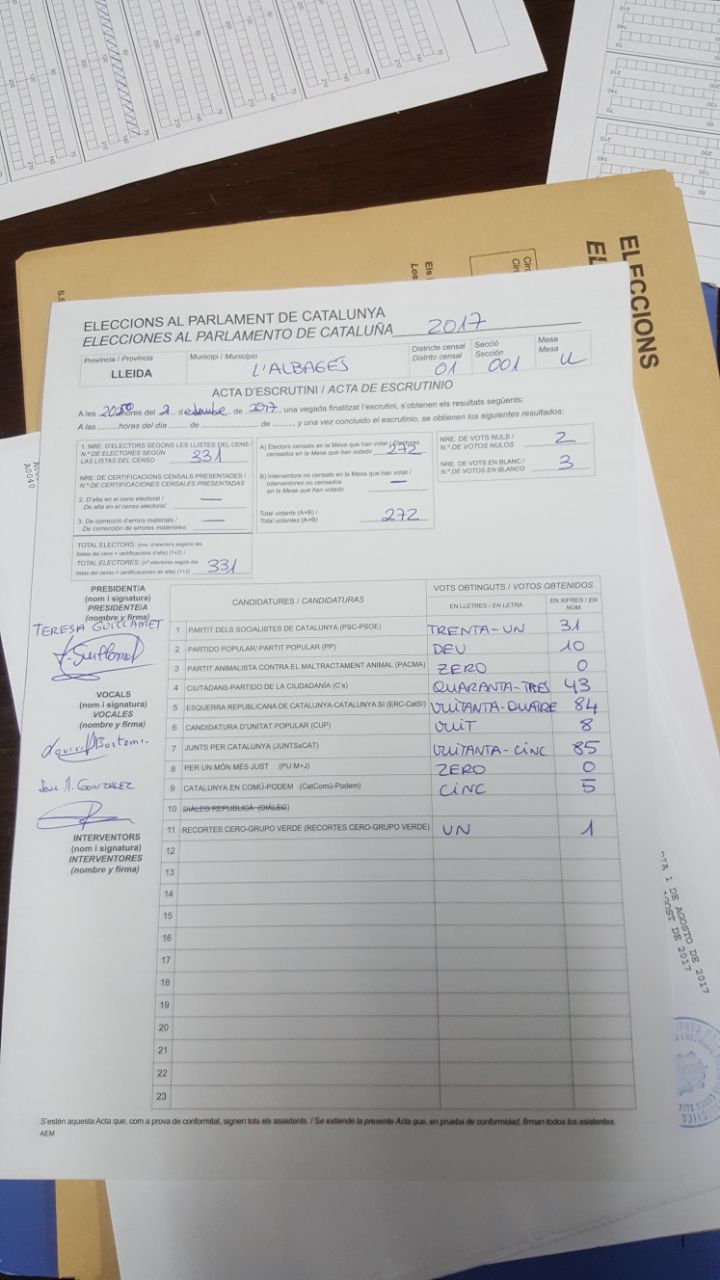 ELECCIONS
ELECCIONS AL PARLAMENT DE CATALUNYA
ELECCIONES AL PARLAMENTO DE CATALUÑA 2017
Provincia / Província
LLEIDA
Municipi / Municipio
L'ALBAGÉS
Districte censal
Distrito censal
01
Secció
Sección
001
Mesa
Mesa
U
ACTA D'ESCRUTINI / ACTA DE ESCRUTINIO
A les 2050 hores del 21 desembre de 2017, una vegada finalitzat l'escrutini, s'obtenen els resultats següents:
A las ..........horas del día ....... de ........................ de ........, y una vez concluido el escrutinio, se obtienen los siguientes resultados:
1. NRE. D'ELECTORS SEGONS LES LLISTES DEL CENS /
N.º DE ELECTORES SEGÚN
LAS LISTAS DEL CENSO 331
NRE. DE CERTIFICACIONS CENSALS PRESENTADES /
N.º DE CERTIFICACIONES CENSALES PRESENTADAS
2. D'alta en el cens electoral / —
De alta en el censo electoral
3. De correcció d'errors materials / —
De corrección de errores materiales
TOTAL ELECTORS: (nre. d'electors segons les
llistes del cens + certificacions d'alta) (1+2) /
TOTAL ELECTORES: (nº electores según las
listas del censo + certificaciones de alta) (1+2) 331
A) Electors censats en la Mesa que han votat / Electores
censados en la Mesa que han votado 272
B) Interventors no censats en la Mesa que han votat /
Interventores no censados —
en la Mesa que han votado
Total votants (A+B) /
Total votantes (A+B) 272
NRE. DE VOTS NULS /
N.º DE VOTOS NULOS 2
NRE. DE VOTS EN BLANC /
N.º DE VOTOS EN BLANCO 3
PRESIDENT/A
(nom i signatura)
PRESIDENTE/A
(nombre y firma)
TERESA GUILLAMET
VOCALS
(nom i signatura)
VOCALES
(nombre y firma)
GONZALEZ
INTERVENTORS
(nom i signatura)
INTERVENTORES
(nombre y firma)
CANDIDATURES / CANDIDATURAS
VOTS OBTINGUTS / VOTOS OBTENIDOS
EN LLETRES / EN LETRA
EN XIFRES / EN NÚM.
1 PARTIT DELS SOCIALISTES DE CATALUNYA (PSC-PSOE) TRENTA-UN 31
2 PARTIDO POPULAR/ PARTIT POPULAR (PP) DEU 10
3 PARTIT ANIMALISTA CONTRA EL MALTRACTAMENT ANIMAL (PACMA) ZERO 0
4 CIUTADANS-PARTIDO DE LA CIUDADANÍA (C's) QUARANTA-TRES 43
5 ESQUERRA REPUBLICANA DE CATALUNYA-CATALUNYA SÍ (ERC-CatSí) VUITANTA-QUATRE 84
6 CANDIDATURA D'UNITAT POPULAR (CUP) VUIT 8
7 JUNTS PER CATALUNYA (JUNTSxCAT) VUITANTA-CINC 85
8 PER UN MÓN MÉS JUST (PU M+J) ZERO 0
9 CATALUNYA EN COMÚ-PODEM (CatComú-Podem) CINC 5
10 DIÀLEG REPUBLICÀ (DIÀLEG)
11 RECORTES CERO-GRUPO VERDE (RECORTES CERO-GRUPO VERDE) UN 1
12
13
14
15
16
17
18
19
20
21
22
23
S'estén aquesta Acta que, com a prova de conformitat, signen tots els assistents. / Se extiende la presente Acta que, en prueba de conformidad, firman todos los asistentes.
AEM
DIA 1 DE AGOSTO DE 2017
AGOST DE 2017